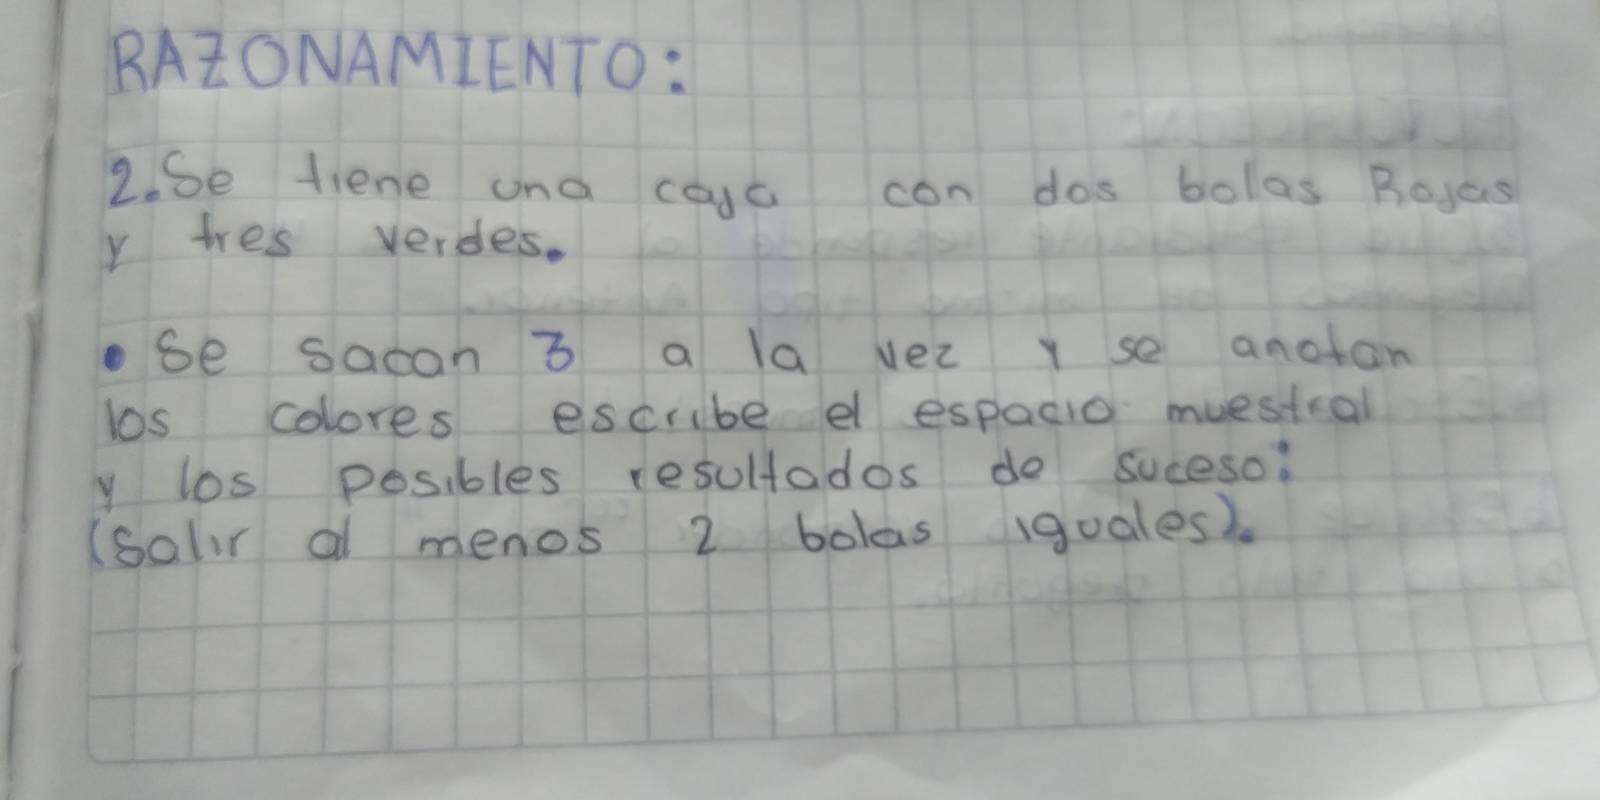 RAZONAMIENTO:
2. Se tiene una caja con dos bolas Rojas
y tres verdes.
• Se sacan 3 a la vez y se anotan
los colores escribe el espacio muestral
y los posibles resultados de suceso:
(salir al menos 2 bolas iguales).